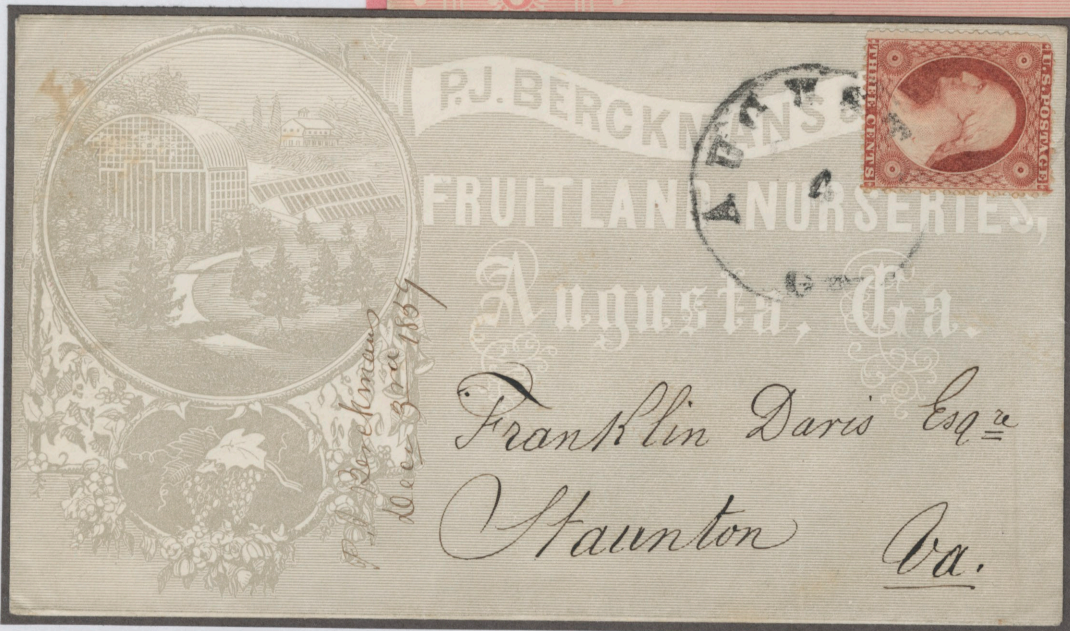 P.J. BERCKMANS &
FRUITLAND NURSERIES,
Augusta, Ga.
U.S. POSTAGE
THREE CENTS.
AUGUSTA
Ga
P J Berckmans
Decr 3rd 1859
Franklin Davis Esqre
Staunton
Va.